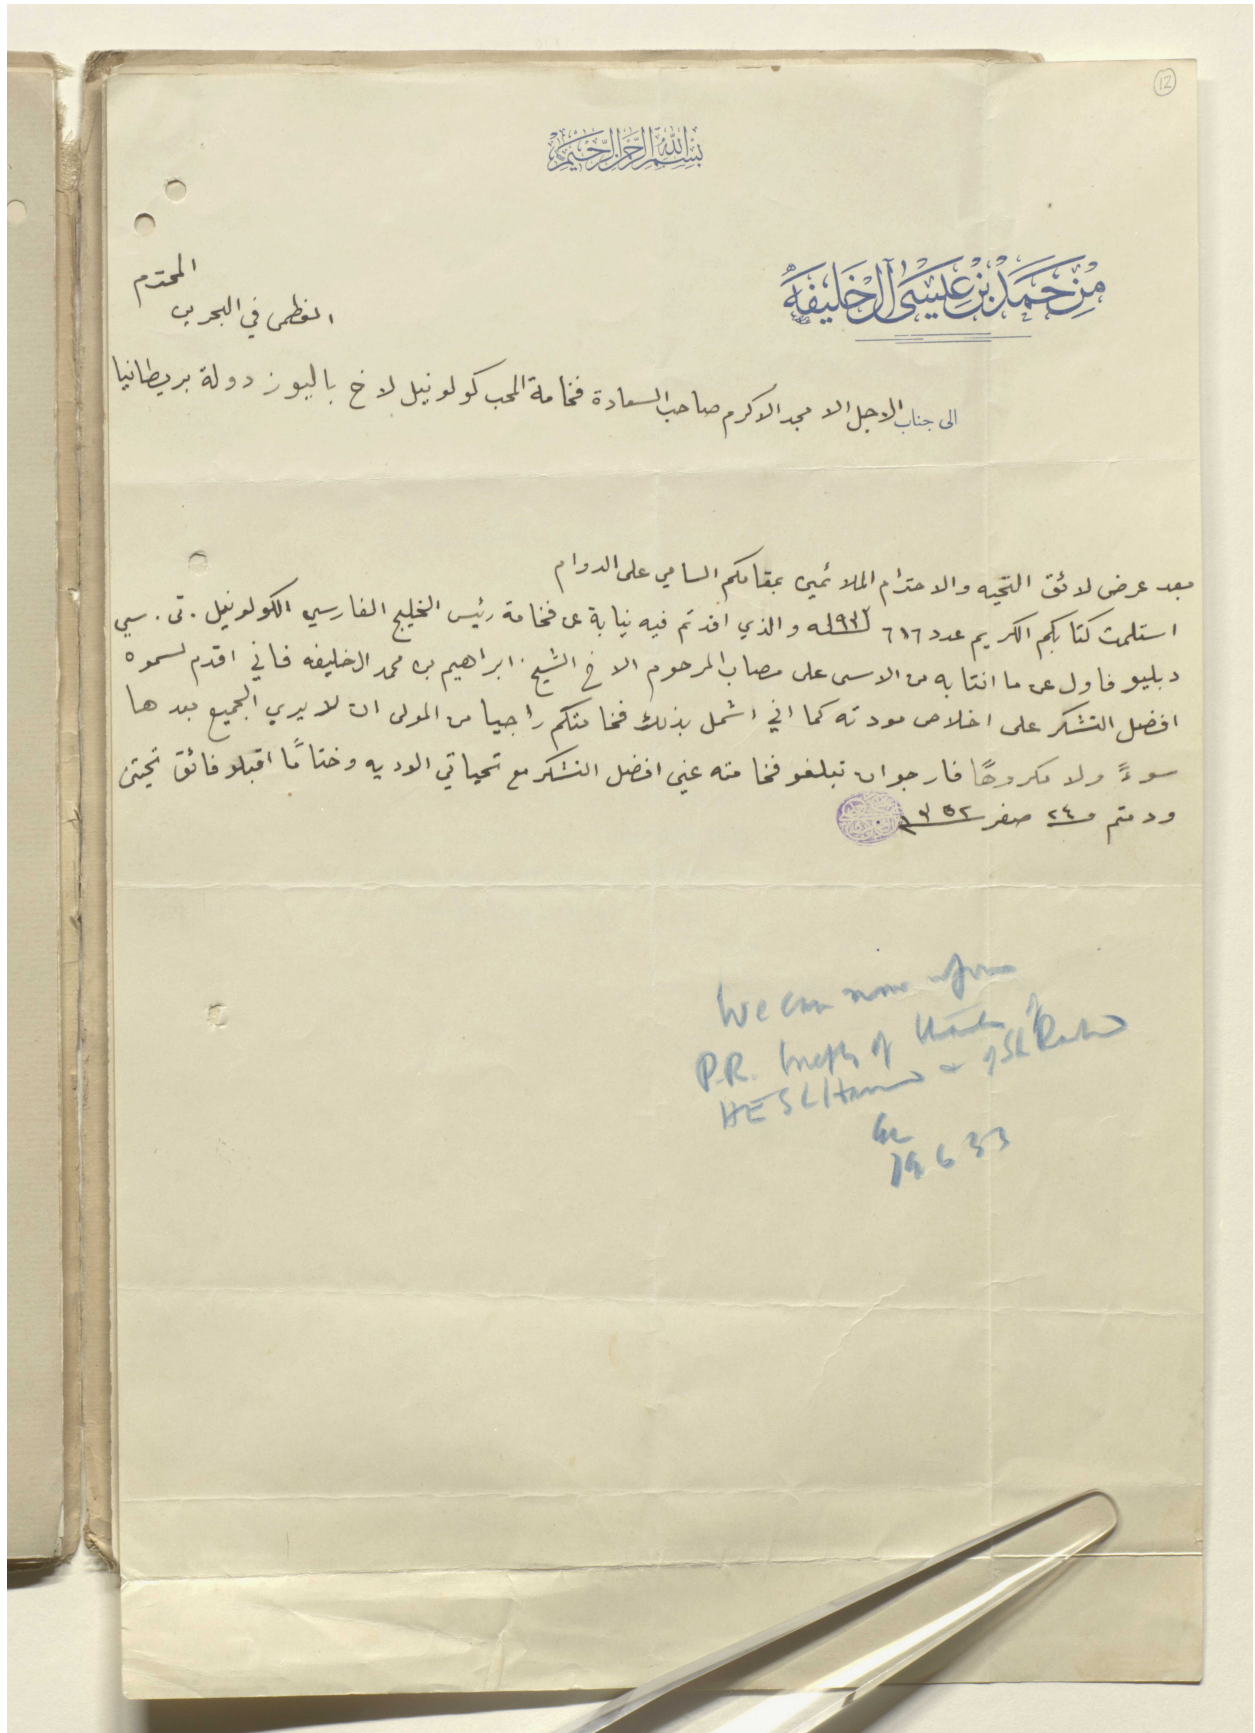 12
بسم الله الرحمن الرحيم
من حمد بن عيسى آل خليفة
المحترم
العظمى في البحرين
الى جناب الاجل الامجد الاكرم صاحب السعادة فخامة المحب كولونيل لاخ باليوز دولة بريطانيا
بعد عرض لائق التحيه والاحترام الملائمين بمقامكم السامي على الدوام
استلمت كتابكم الكريم عدد ٦١٦ والذي افدتم فيه نيابة عن فخامة رئيس الخليج الفارسي الكولونيل . تى . سي
دبليو فاول عن ما انتابه من الاسى على مصاب المرحوم الاخ الشيخ ابراهيم بن محمد ال خليفه فاني اقدم لسموه
افضل التشكر على اخلاص مودته كما اني اشمل بذلك فخامتكم راجيا من المولى ان لا يري الجميع بعدها
سوءً ولا مكروهًا فارجو ان تبلغو فخامته عني افضل التشكر مع تحياتي الوديه وختامًا اقبلو فائق تحيتي
ودمتم ٢٤ صفر ١٣٥٢
We can now inform
P.R. of thanks of
HE Sh Hamad & of Sh Rashid
19 6 33